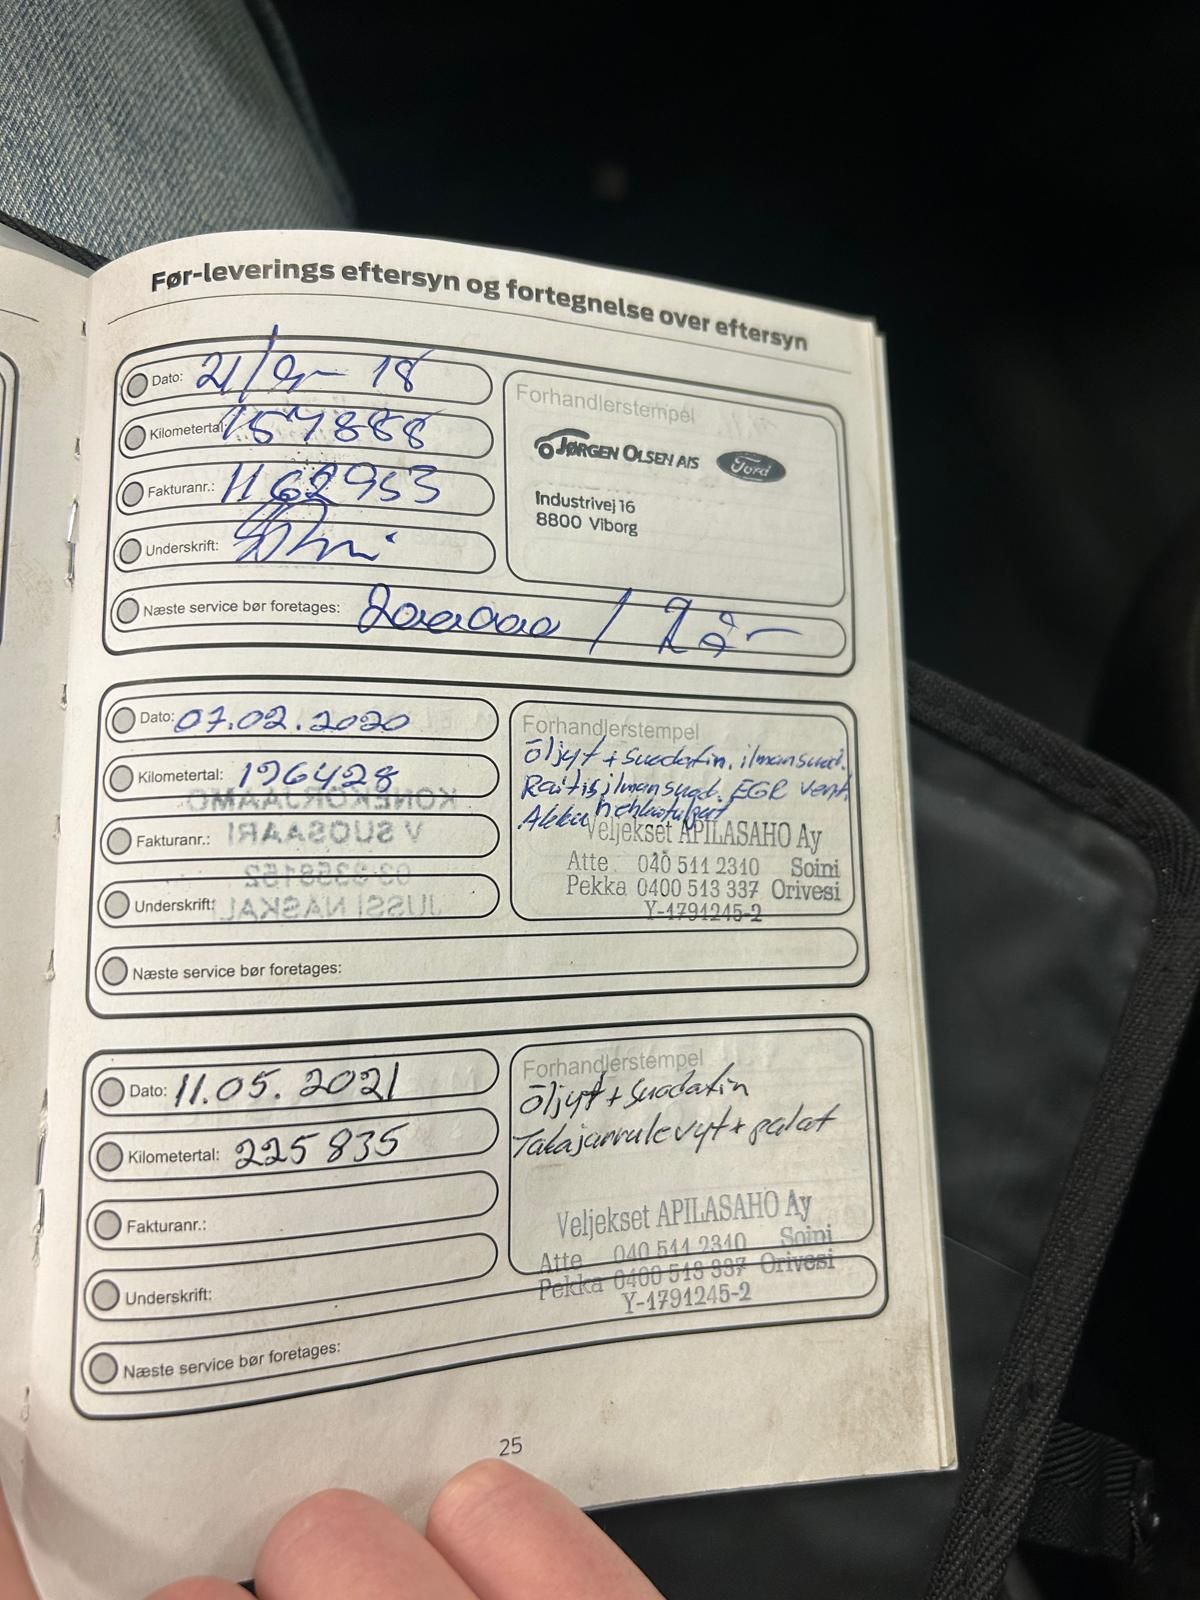 Før-leverings eftersyn og fortegnelse over eftersyn
Dato: 21/9- 18
Kilometertal: 157888
Fakturanr.: 1162953
Underskrift:
Næste service bør foretages: 200000 / 2 år
Forhandlerstempel
JØRGEN OLSEN A/S Ford
Industrivej 16
8800 Viborg
Dato: 07.02.2020
Kilometertal: 196428
Fakturanr.:
Underskrift:
Næste service bør foretages:
Forhandlerstempel
Öljyt + suodatin, ilmansuod.
Raitisilmansuod. EGR vent.
Akku
Veljekset APILASAHO Ay
Atte 040 511 2310 Soini
Pekka 0400 513 337 Orivesi
Y-1791245-2
KONEKORJAAMO
V SUOSAARI
03 3358152
JUSSI NASKALI
Dato: 11.05.2021
Kilometertal: 225835
Fakturanr.:
Underskrift:
Næste service bør foretages:
Forhandlerstempel
Öljyt + suodatin
Takajarrulevyt + palat
Veljekset APILASAHO Ay
Atte 040 511 2310 Soini
Pekka 0400 513 337 Orivesi
Y-1791245-2
25